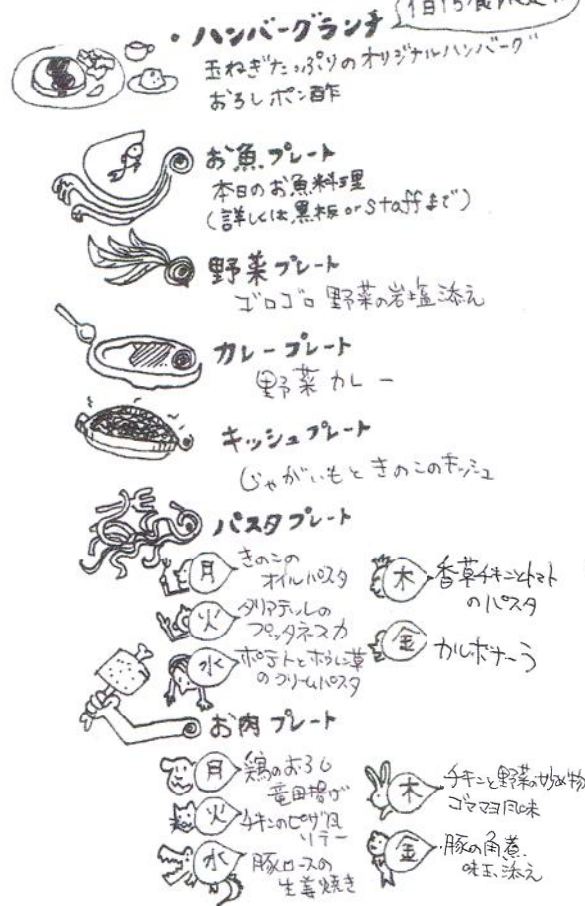 ・ハンバーグランチ
1日15食限定
玉ねぎたっぷりのオリジナルハンバーグ
おろしポン酢
お魚プレート
本日のお魚料理
(詳しくは黒板orstaffまで)
野菜プレート
ゴロゴロ野菜の岩塩添え
カレープレート
野菜カレー
キッシュプレート
じゃがいもときのこのキッシュ
パスタプレート
月 きのこの
オイルパスタ
火 タリアテッレの
プッタネスカ
水 ポテトとホウレン草
のクリームパスタ
木 香草チキンとトマト
のパスタ
金 カルボナーラ
お肉プレート
月 鶏のおろし
竜田揚げ
火 チキンのピザ風
ソテー
水 豚ロースの
生姜焼き
木 チキンと野菜の炒め物
ゴママヨ風味
金 豚の角煮
味玉添え